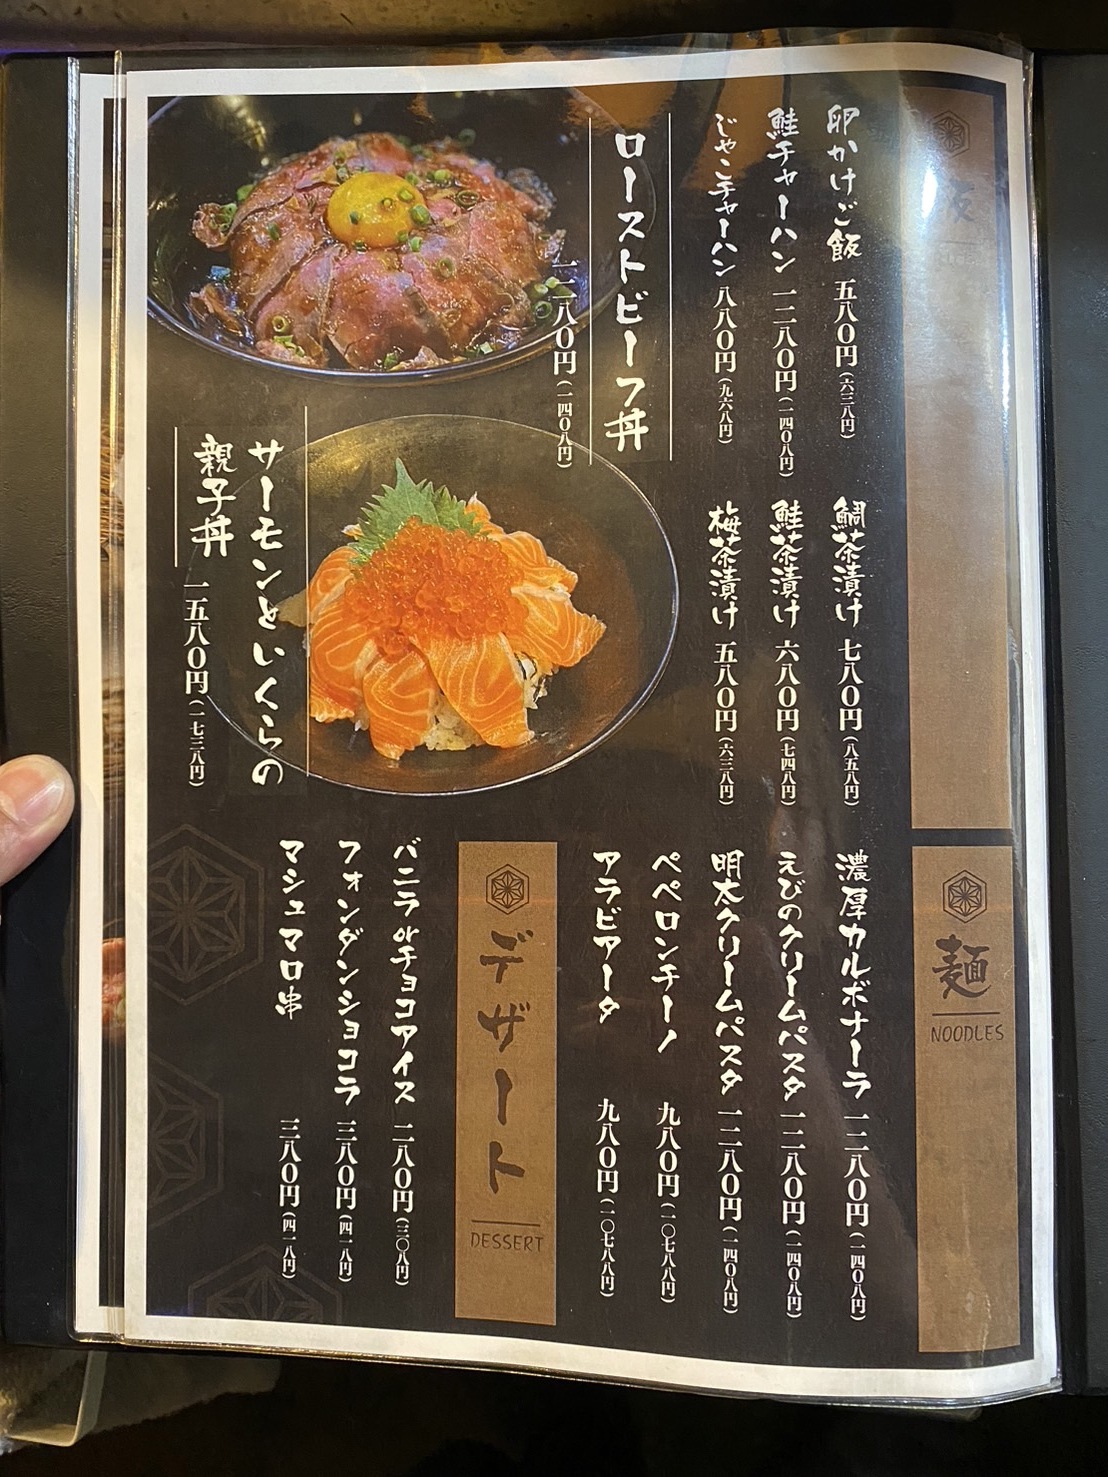 卵かけご飯 五八〇円(六三八円)
鮭チャーハン 一二八〇円(一四〇八円)
じゃこチャーハン 八八〇円(九六八円)
鯛茶漬け 七八〇円(八五八円)
鮭茶漬け 六八〇円(七四八円)
梅茶漬け 五八〇円(六三八円)
ローストビーフ丼
一二八〇円(一四〇八円)
サーモンといくらの
親子丼 一五八〇円(一七三八円)
麺
NOODLES
濃厚カルボナーラ 一二八〇円(一四〇八円)
えびのクリームパスタ 一二八〇円(一四〇八円)
明太クリームパスタ 一二八〇円(一四〇八円)
ペペロンチーノ 九八〇円(一〇七八八円)
アラビアータ 九八〇円(一〇七八八円)
デザート
DESSERT
バニラorチョコアイス 二八〇円(三〇八円)
フォンダンショコラ 三八〇円(四一八円)
マシュマロ串 三八〇円(四一八円)